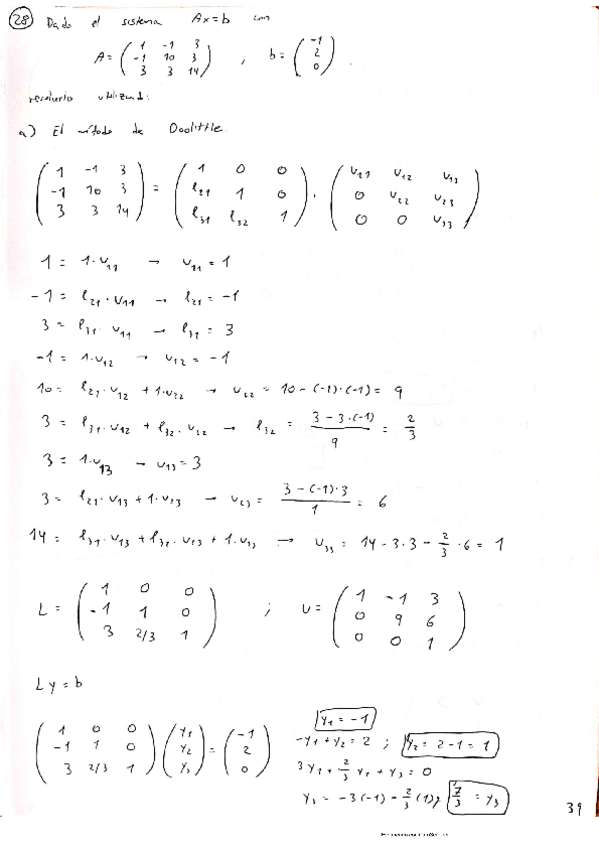 28 Dado el sistema Ax=b con
A = ( 1 -1 3 ; -1 10 3 ; 3 3 14 ) , b = ( -1 ; 2 ; 0 ).
resolverlo utilizando:
a) El método de Doolittle
( 1 -1 3 ; -1 10 3 ; 3 3 14 ) = ( 1 0 0 ; l21 1 0 ; l31 l32 1 ) · ( u11 u12 u13 ; 0 u22 u23 ; 0 0 u33 )
1 = 1·u11 → u11 = 1
-1 = l21·u11 → l21 = -1
3 = l31·u11 → l31 = 3
-1 = 1·u12 → u12 = -1
10 = l21·u12 + 1·u22 → u22 = 10 - (-1)·(-1) = 9
3 = l31·u12 + l32·u22 → l32 = (3 - 3·(-1))/9 = 2/3
3 = 1·u13 → u13 = 3
3 = l21·u13 + 1·u23 → u23 = (3 - (-1)·3)/1 = 6
14 = l31·u13 + l32·u23 + 1·u33 → u33 = 14 - 3·3 - 2/3·6 = 1
L = ( 1 0 0 ; -1 1 0 ; 3 2/3 1 ) ; U = ( 1 -1 3 ; 0 9 6 ; 0 0 1 )
Ly = b
( 1 0 0 ; -1 1 0 ; 3 2/3 1 ) ( y1 ; y2 ; y3 ) = ( -1 ; 2 ; 0 )
y1 = -1
-y1 + y2 = 2 ; y2 = 2-1 = 1
3y1 + 2/3 y2 + y3 = 0
y3 = -3(-1) - 2/3 (1), 7/3 = y3
39